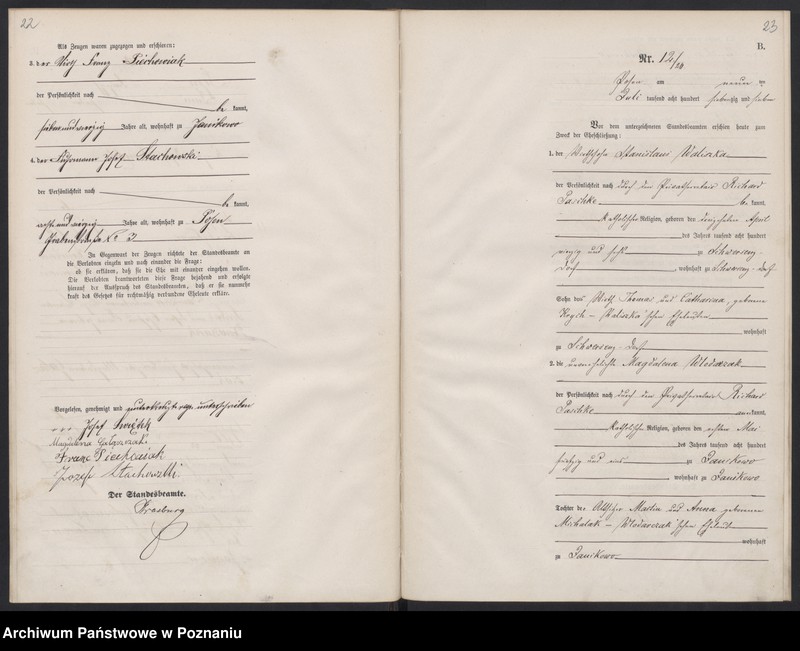 22
Als Zeugen waren zugezogen und erschienen:
3. der Wirth Franz Piechowiak
der Persönlichkeit nach
be kannt,
siebenundvierzig Jahre alt, wohnhaft zu Janikowo
4. der Fuhrmann Josef Stachowski
der Persönlichkeit nach
be kannt,
Jahre alt, wohnhaft zu Posen
No 3
In Gegenwart der Zeugen richtete der Standesbeamte an
die Verlobten einzeln und nach einander die Frage:
ob sie erklären, daß sie die Ehe mit einander eingehen wollen.
Die Verlobten beantworteten diese Frage bejahend und erfolgte
hierauf der Ausspruch des Standesbeamten, daß er sie nunmehr
kraft des Gesetzes für rechtmäßig verbundene Eheleute erkläre.
Vorgelesen, genehmigt und unterschrieben
+++ Josef
Magdalena
Franc Piechowiak
Jozef Stachowski
Der Standesbeamte.
23
B.
Nr. 12
Posen am neun ten
Juli tausend acht hundert siebenzig und sieben
Vor dem unterzeichneten Standesbeamten erschien heute zum
Zweck der Eheschließung:
1. der Wirthssohn Stanislaus Waliszka
der Persönlichkeit nach durch den Privatsekretair Richard
Paschke be kannt,
katholischer Religion, geboren den April
des Jahres tausend acht hundert
vierzig und sechs zu Schwersenz-
Dorf, wohnhaft zu Schwersenz-Dorf
Sohn des Wirth Thomas und Catharina, geborene
Waliszka'schen Eheleuten
wohnhaft
zu Schwersenz-Dorf
2. die unverehelichte Magdalena Wlodarzak
der Persönlichkeit nach durch den Privatsekretair Richard
Paschke kannt,
katholischer Religion, geboren den ersten Mai
des Jahres tausend acht hundert
fünfzig und eins zu Janikowo
, wohnhaft zu Janikowo
Tochter der Altsitzer Martin und Anna geborenen
Michalak - Wlodarczak'schen Eheleute
wohnhaft
zu Janikowo
Archiwum Państwowe w Poznaniu